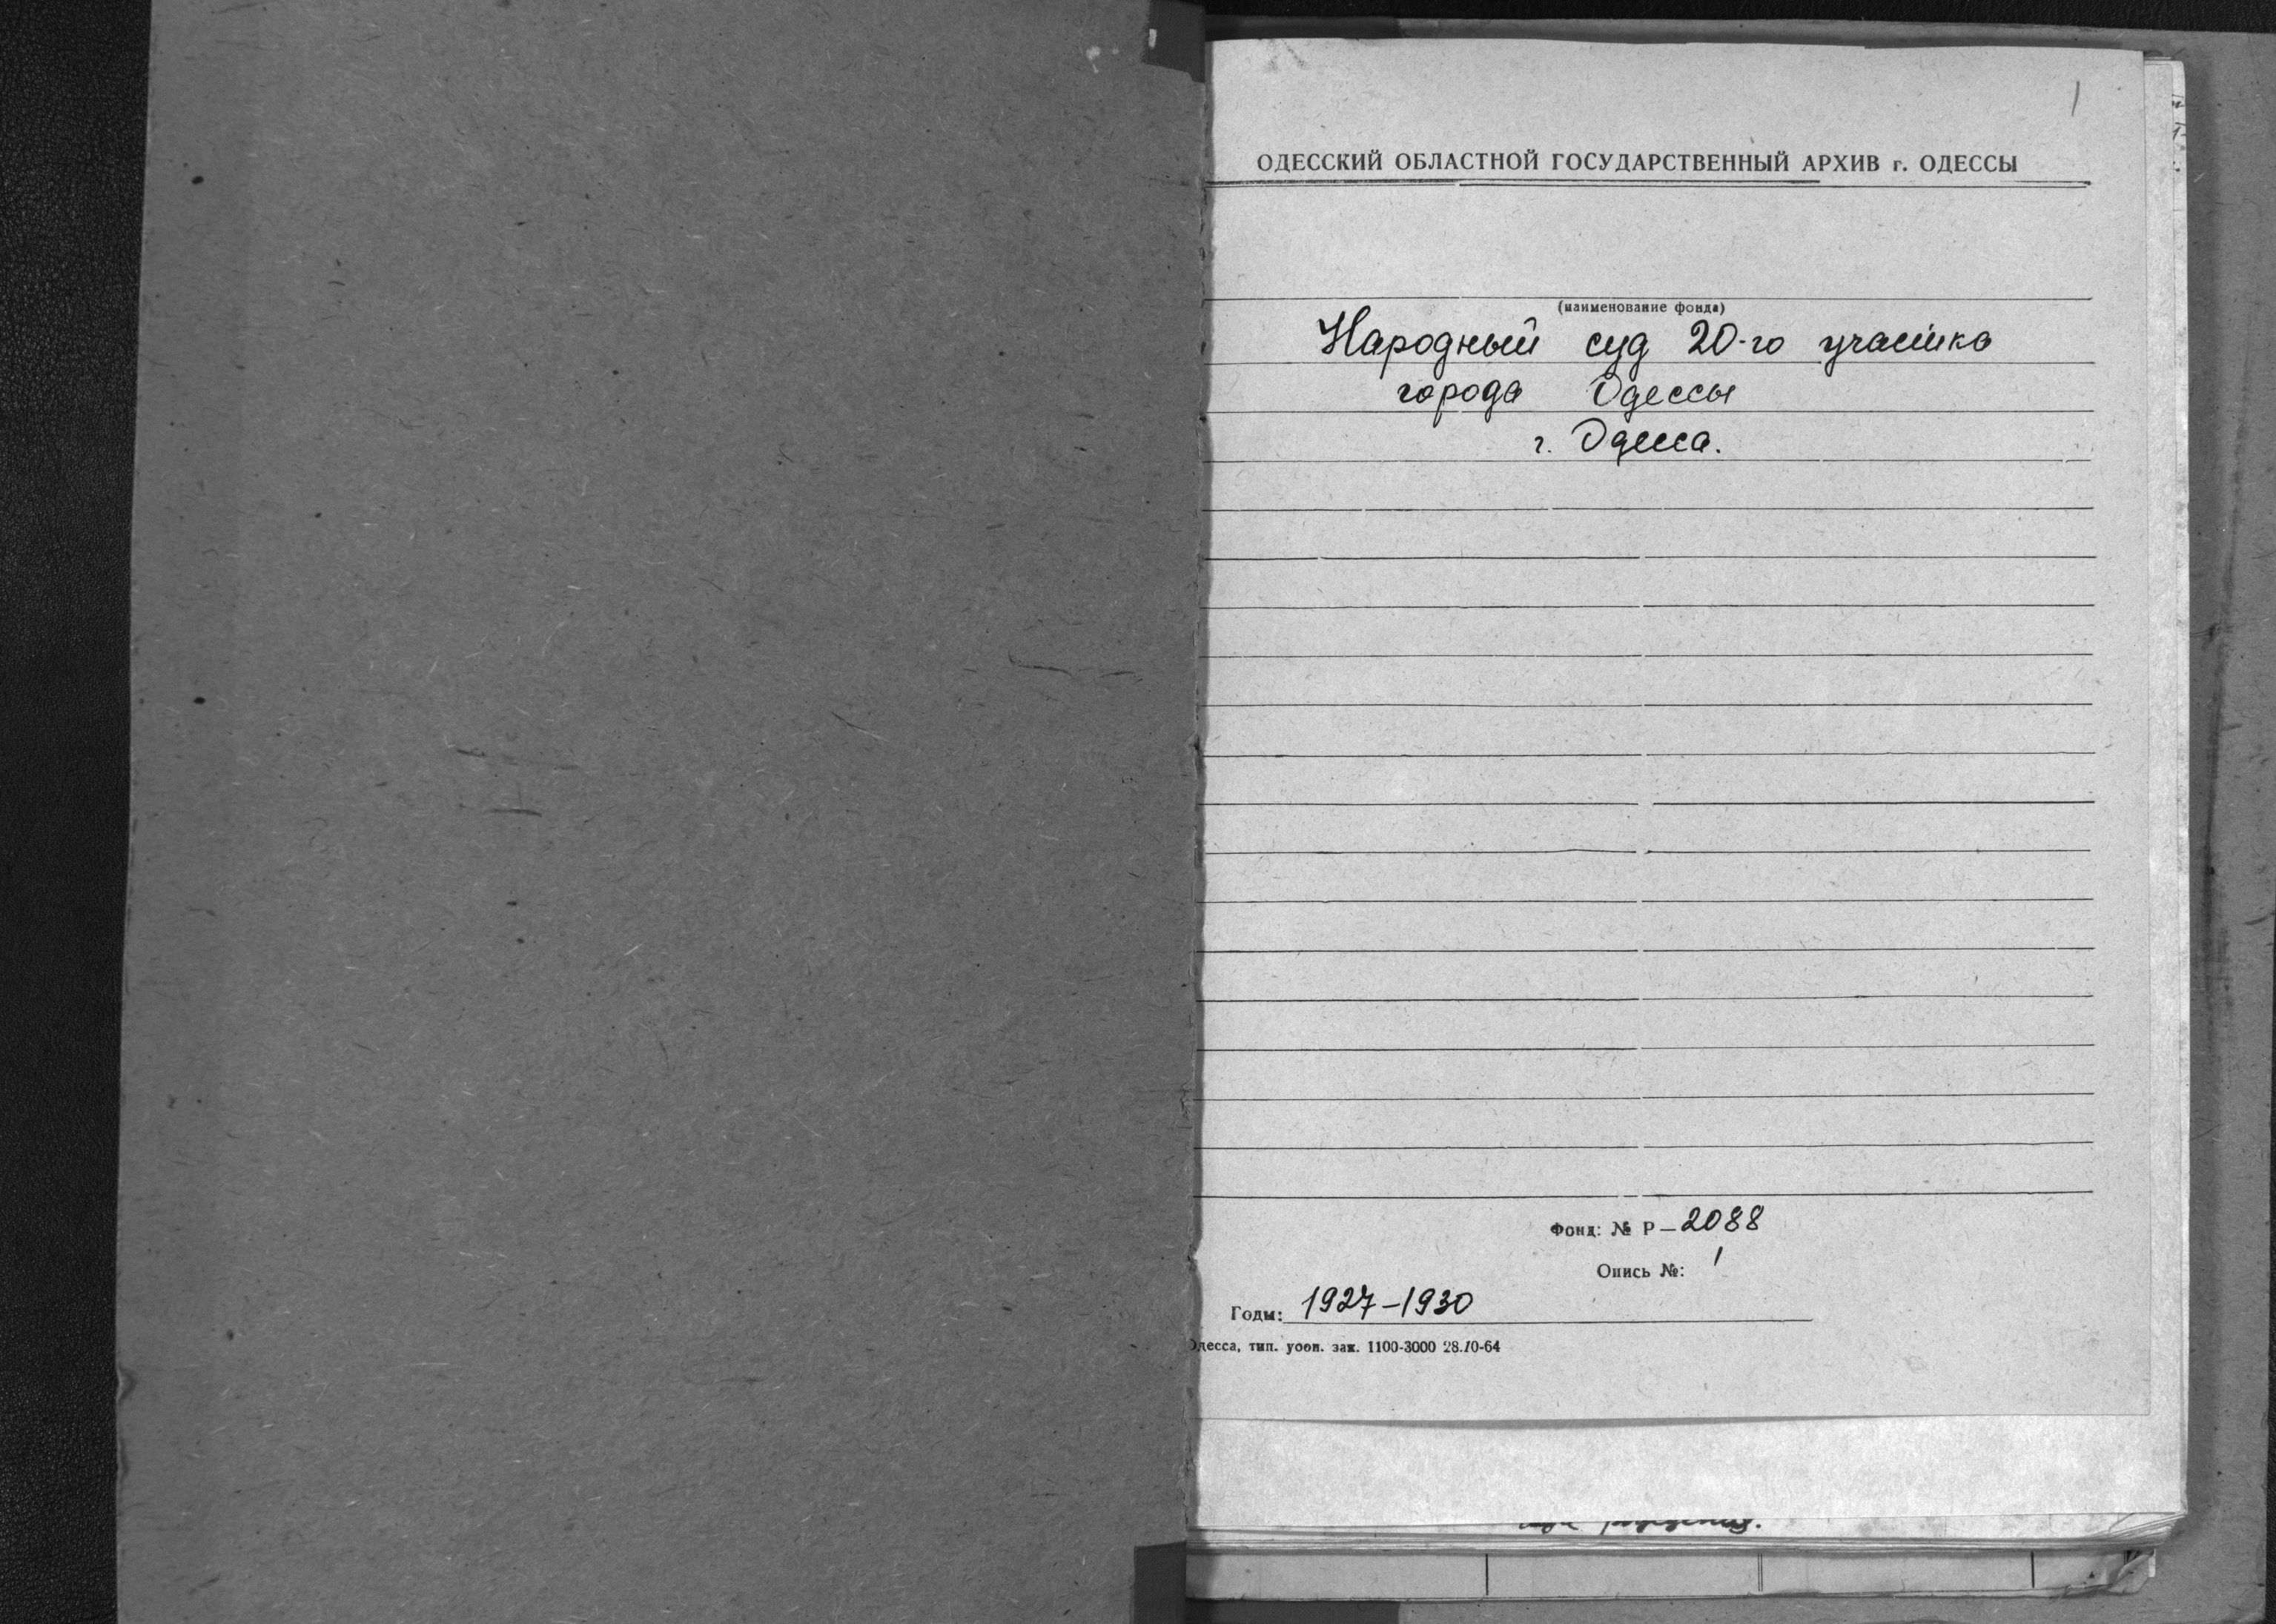 1
ОДЕССКИЙ ОБЛАСТНОЙ ГОСУДАРСТВЕННЫЙ АРХИВ г. ОДЕССЫ
(наименование фонда)
Народный суд 20-го участка
города Одессы
г. Одесса.
Фонд: № Р—2088
Опись №: 1
Годы: 1927–1930
Одесса, тип. уооп. зак. 1100-3000 28.10-64